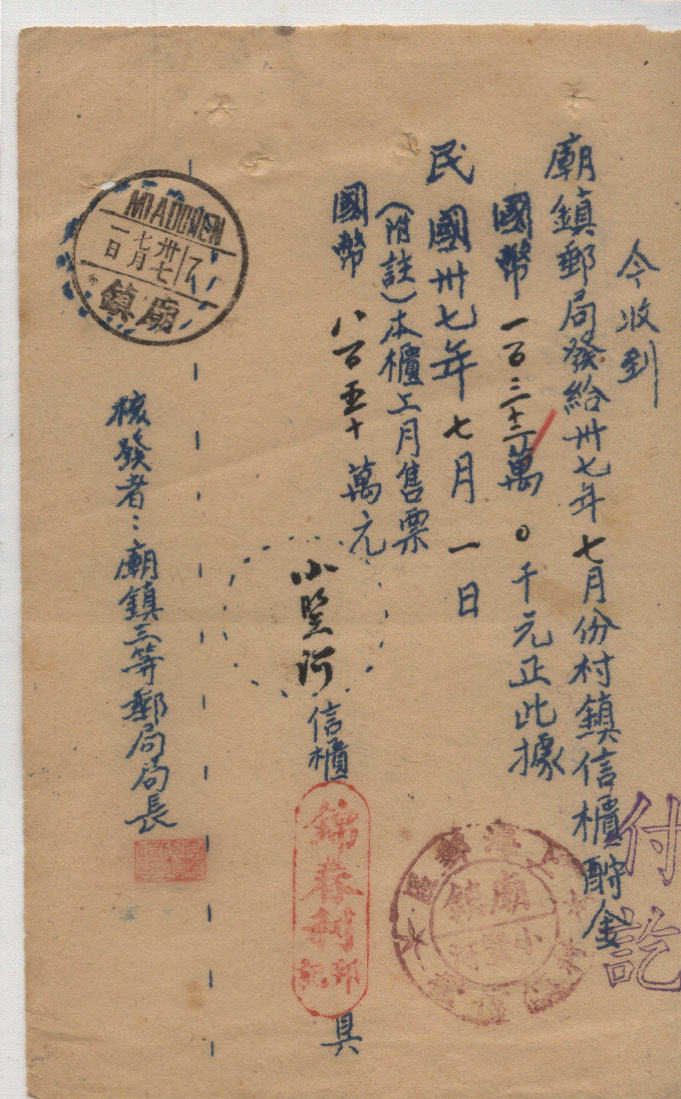 今收到
廟鎮郵局發給卅七年七月份村鎮信櫃酧金
國幣一百三十二萬〇千元正此據
民國卅七年七月一日
(附註)本櫃上月售票
國幣八百五十萬元
小竪河信櫃
錦春利
具
核發者:廟鎮三等郵局局長
MIAOCHEN
卅七
七月
一日
17
廟鎮
付訖
廟鎮
小竪河